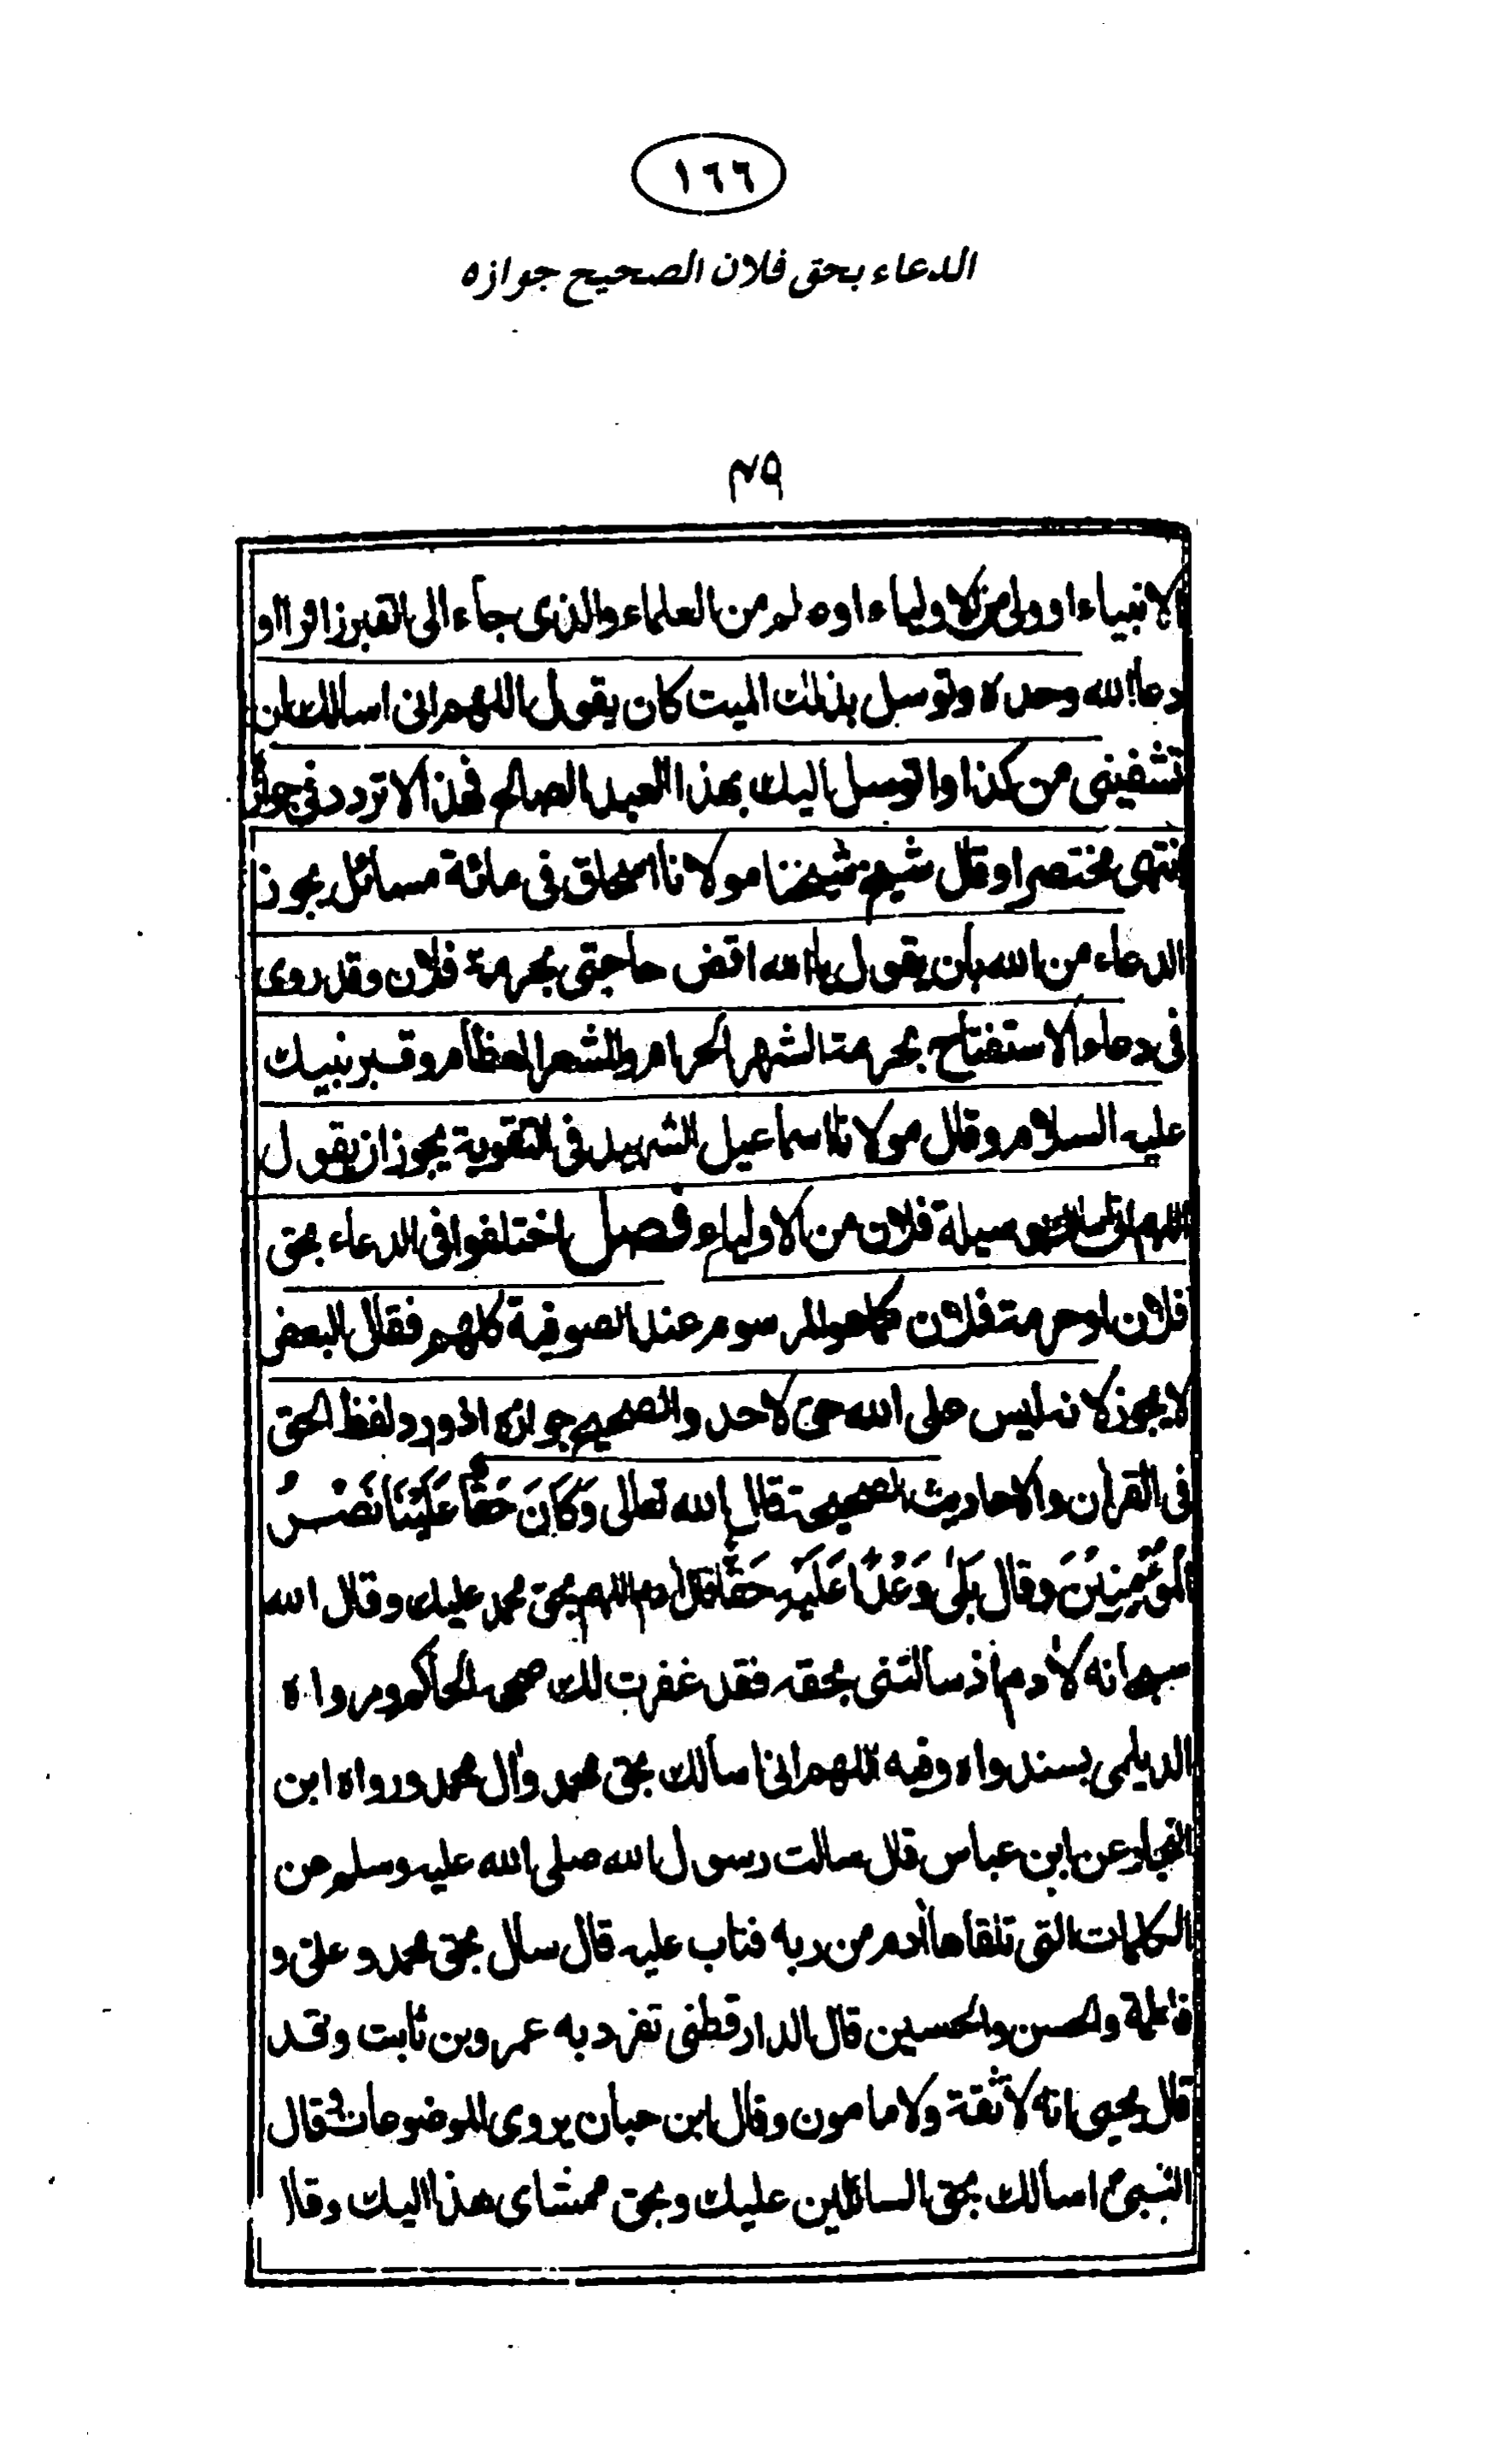 ١٦٦
الدعاء بحق فلان الصحيح جوازه
۴۹
الانبیاء او ولی من الاولیاء او عالم من العلماء والذی جاء الی القبر زائرا او
دعا الله وحده وتوسل بذلك المیت كان یقول اللهم انی اسالك ان
تشفینی من كذا واتوسل الیك بهذا العبد الصالح فهذا لا تردد فی جوازه
انتهی مختصرا وقال شیخ شیخنا مولانا اسحاق فی مائة مسائل یجوز
الدعاء من الله بان یقول یا الله اقض حاجتی بحرمة فلان وقد روی
فی دعاء الاستفتاح بحرمة الشهر الحرام والمشعر العظام وقبر نبیك
علیه السلام وقال مولانا اسماعیل الشهید فی التقویة یجوز ان یقول
اللهم انی اسالك بوسیلة فلان من الاولیاء فصل اختلفوا فی الدعاء بحق
فلان او حرمة فلان كما هو المرسوم عند الصوفیة كلهم فقال البعض
لا یجوز لانه لیس علی الله حق لاحد والصحیح جوازه اذ ورد لفظ الحق
فی القرآن والاحادیث الصحیحة قال الله تعالی وَكَانَ حَقًّا عَلَیْنَا نَصْرُ
الْمُؤْمِنِیْنَ وقال بَلٰی وَعْدًا عَلَیْهِ حَقًّا قال آدم اللهم بحق محمد علیك وقال الله
سبحانه لآدم اذ سالتنی بحقه فقد غفرت لك صححه الحاكم ورواه
الدیلمی بسند واه وفیه اللهم انی اسالك بحق محمد وآل محمد ورواه ابن
النجار عن ابن عباس قال سالت رسول الله صلی الله علیه وسلم عن
الكلمات التی تلقاها آدم من ربه فتاب علیه قال سال بحق محمد وعلی و
فاطمة والحسن والحسین قال الدارقطنی تفرد به عمرو بن ثابت وقد
قال یحیی انه لا ثقة ولا مامون وقال ابن حبان یروی الموضوعات وقال
النبی اسالك بحق السائلین علیك وبحق ممشای هذا الیك وقال